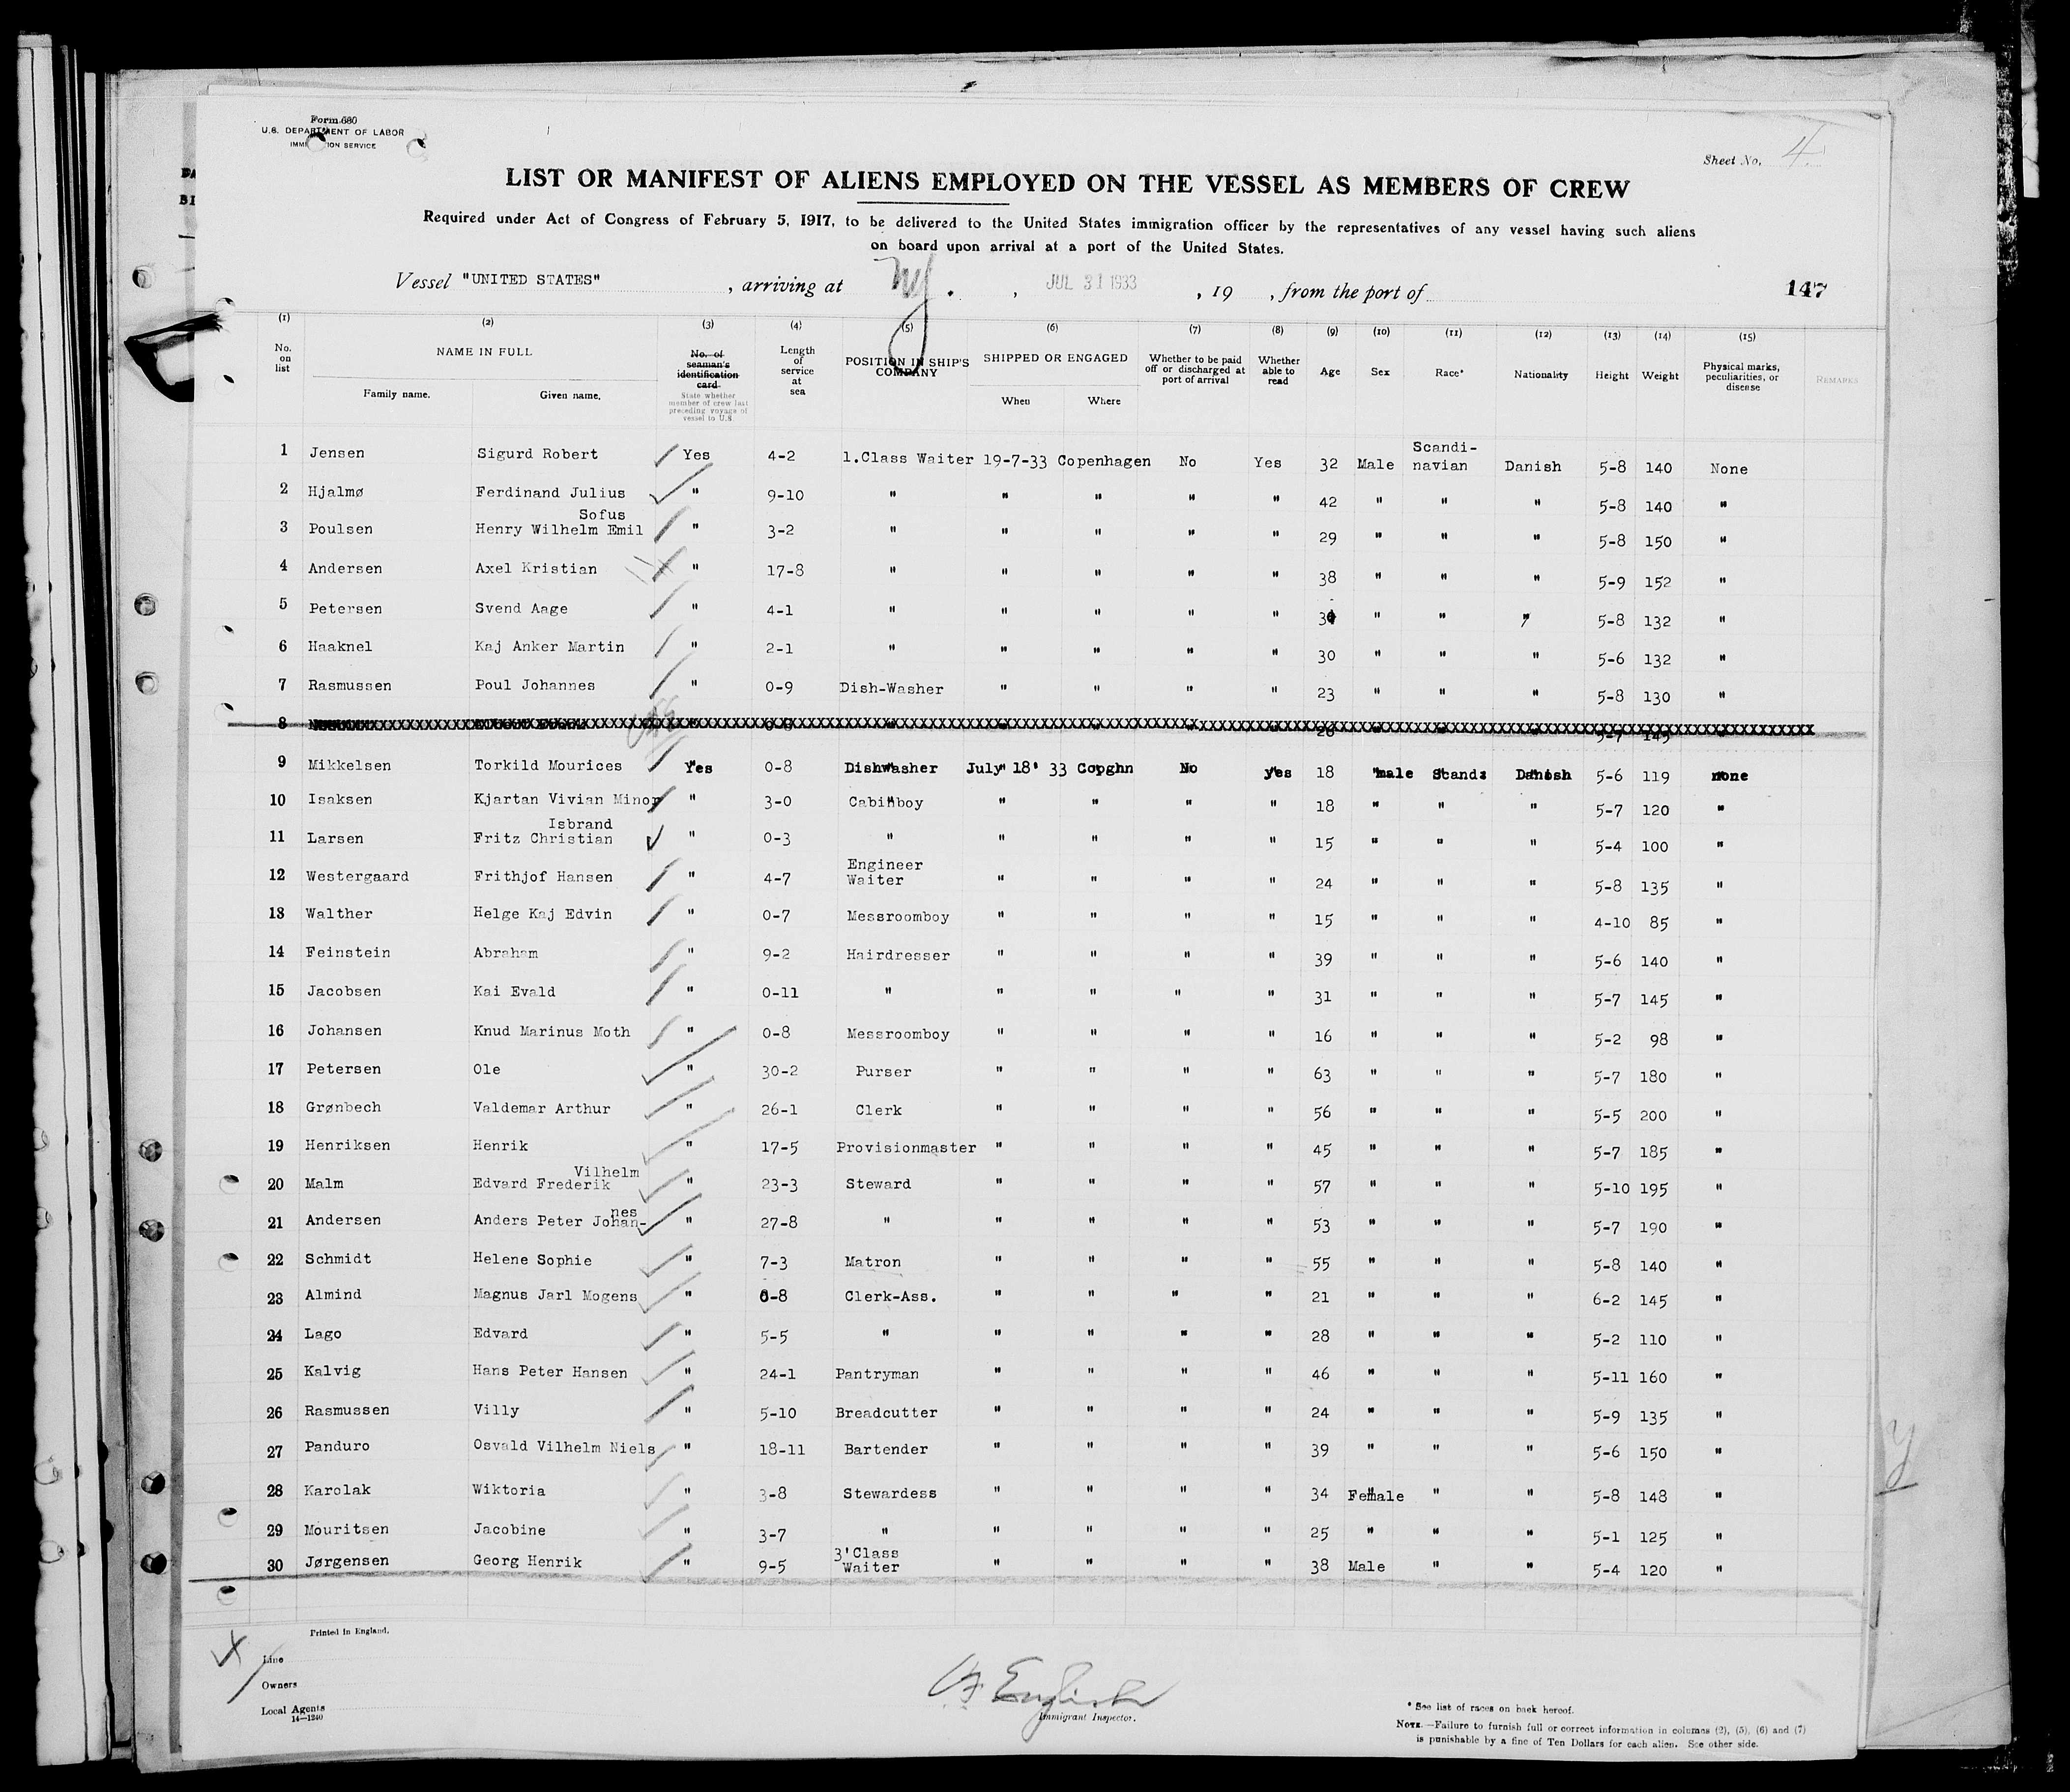 Form 680
U.S. DEPARTMENT OF LABOR
IMMIGRATION SERVICE
Sheet No. 4
LIST OR MANIFEST OF ALIENS EMPLOYED ON THE VESSEL AS MEMBERS OF CREW
Required under Act of Congress of February 5, 1917, to be delivered to the United States immigration officer by the representatives of any vessel having such aliens
on board upon arrival at a port of the United States.
Vessel "UNITED STATES" , arriving at NY. , JUL 31 1933 , 19 , from the port of 147
(1) (2) (3) (4) (5) (6) (7) (8) (9) (10) (11) (12) (13) (14) (15)
No. on list NAME IN FULL Family name. Given name. No. of seaman's identification card. State whether member of crew last preceding voyage of vessel to U.S. Length of service at sea POSITION IN SHIP'S COMPANY SHIPPED OR ENGAGED When Where Whether to be paid off or discharged at port of arrival Whether able to read Age Sex Race* Nationality Height Weight Physical marks, peculiarities, or disease REMARKS
1 Jensen Sigurd Robert Yes 4-2 1.Class Waiter 19-7-33 Copenhagen No Yes 32 Male Scandi-navian Danish 5-8 140 None
2 Hjalmø Ferdinand Julius " 9-10 " " " " " 42 " " " 5-8 140 "
3 Poulsen Henry Wilhelm Emil Sofus " 3-2 " " " " " 29 " " " 5-8 150 "
4 Andersen Axel Kristian " 17-8 " " " " " 38 " " " 5-9 152 "
5 Petersen Svend Aage " 4-1 " " " " " " " " 5-8 132 "
6 Haaknel Kaj Anker Martin " 2-1 " " " " " 30 " " " 5-6 132 "
7 Rasmussen Poul Johannes " 0-9 Dish-Washer " " " " 23 " " " 5-8 130 "
8
9 Mikkelsen Torkild Mourices Yes 0-8 Dishwasher July 18' 33 Copghn No yes 18 male Scand: Danish 5-6 119 none
10 Isaksen Kjartan Vivian Minor " 3-0 Cabinboy " " " " 18 " " " 5-7 120 "
11 Larsen Fritz Christian Isbrand " 0-3 " " " " " 15 " " " 5-4 100 "
12 Westergaard Frithjof Hansen " 4-7 Engineer Waiter " " " " 24 " " " 5-8 135 "
13 Walther Helge Kaj Edvin " 0-7 Messroomboy " " " " 15 " " " 4-10 85 "
14 Feinstein Abraham " 9-2 Hairdresser " " " " 39 " " " 5-6 140 "
15 Jacobsen Kai Evald " 0-11 " " " " " 31 " " " 5-7 145 "
16 Johansen Knud Marinus Moth " 0-8 Messroomboy " " " " 16 " " " 5-2 98 "
17 Petersen Ole " 30-2 Purser " " " " 63 " " " 5-7 180 "
18 Grønbech Valdemar Arthur " 26-1 Clerk " " " " 56 " " " 5-5 200 "
19 Henriksen Henrik " 17-5 Provisionmaster " " " " 45 " " " 5-7 185 "
20 Malm Edvard Frederik Vilhelm " 23-3 Steward " " " " 57 " " " 5-10 195 "
21 Andersen Anders Peter Johan-nes " 27-8 " " " " " 53 " " " 5-7 190 "
22 Schmidt Helene Sophie " 7-3 Matron " " " " 55 " " " 5-8 140 "
23 Almind Magnus Jarl Mogens " 0-8 Clerk-Ass. " " " " 21 " " " 6-2 145 "
24 Lago Edvard " 5-5 " " " " " 28 " " " 5-2 110 "
25 Kalvig Hans Peter Hansen " 24-1 Pantryman " " " " 46 " " " 5-11 160 "
26 Rasmussen Villy " 5-10 Breadcutter " " " " 24 " " " 5-9 135 "
27 Panduro Osvald Vilhelm Niels " 18-11 Bartender " " " " 39 " " " 5-6 150 "
28 Karolak Wiktoria " 3-8 Stewardess " " " " 34 Female " " 5-8 148 "
29 Mouritsen Jacobine " 3-7 " " " " " 25 " " " 5-1 125 "
30 Jørgensen Georg Henrik " 9-5 3'Class Waiter " " " " 38 Male " " 5-4 120 "
Printed in England.
Line
Owners
Local Agents
14—1240
English
Immigrant Inspector.
* See list of races on back hereof.
NOTE.—Failure to furnish full or correct information in columns (2), (5), (6) and (7)
is punishable by a fine of Ten Dollars for each alien. See other side.